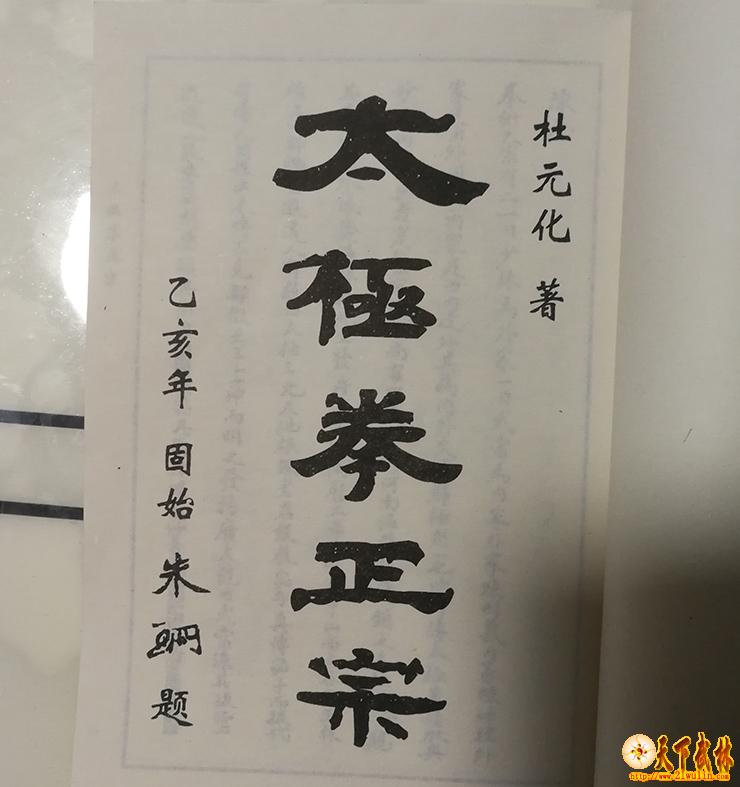 杜元化 著
太極拳正宗
乙亥年 固始 朱 题
天下武林
http://www.21wulin.com